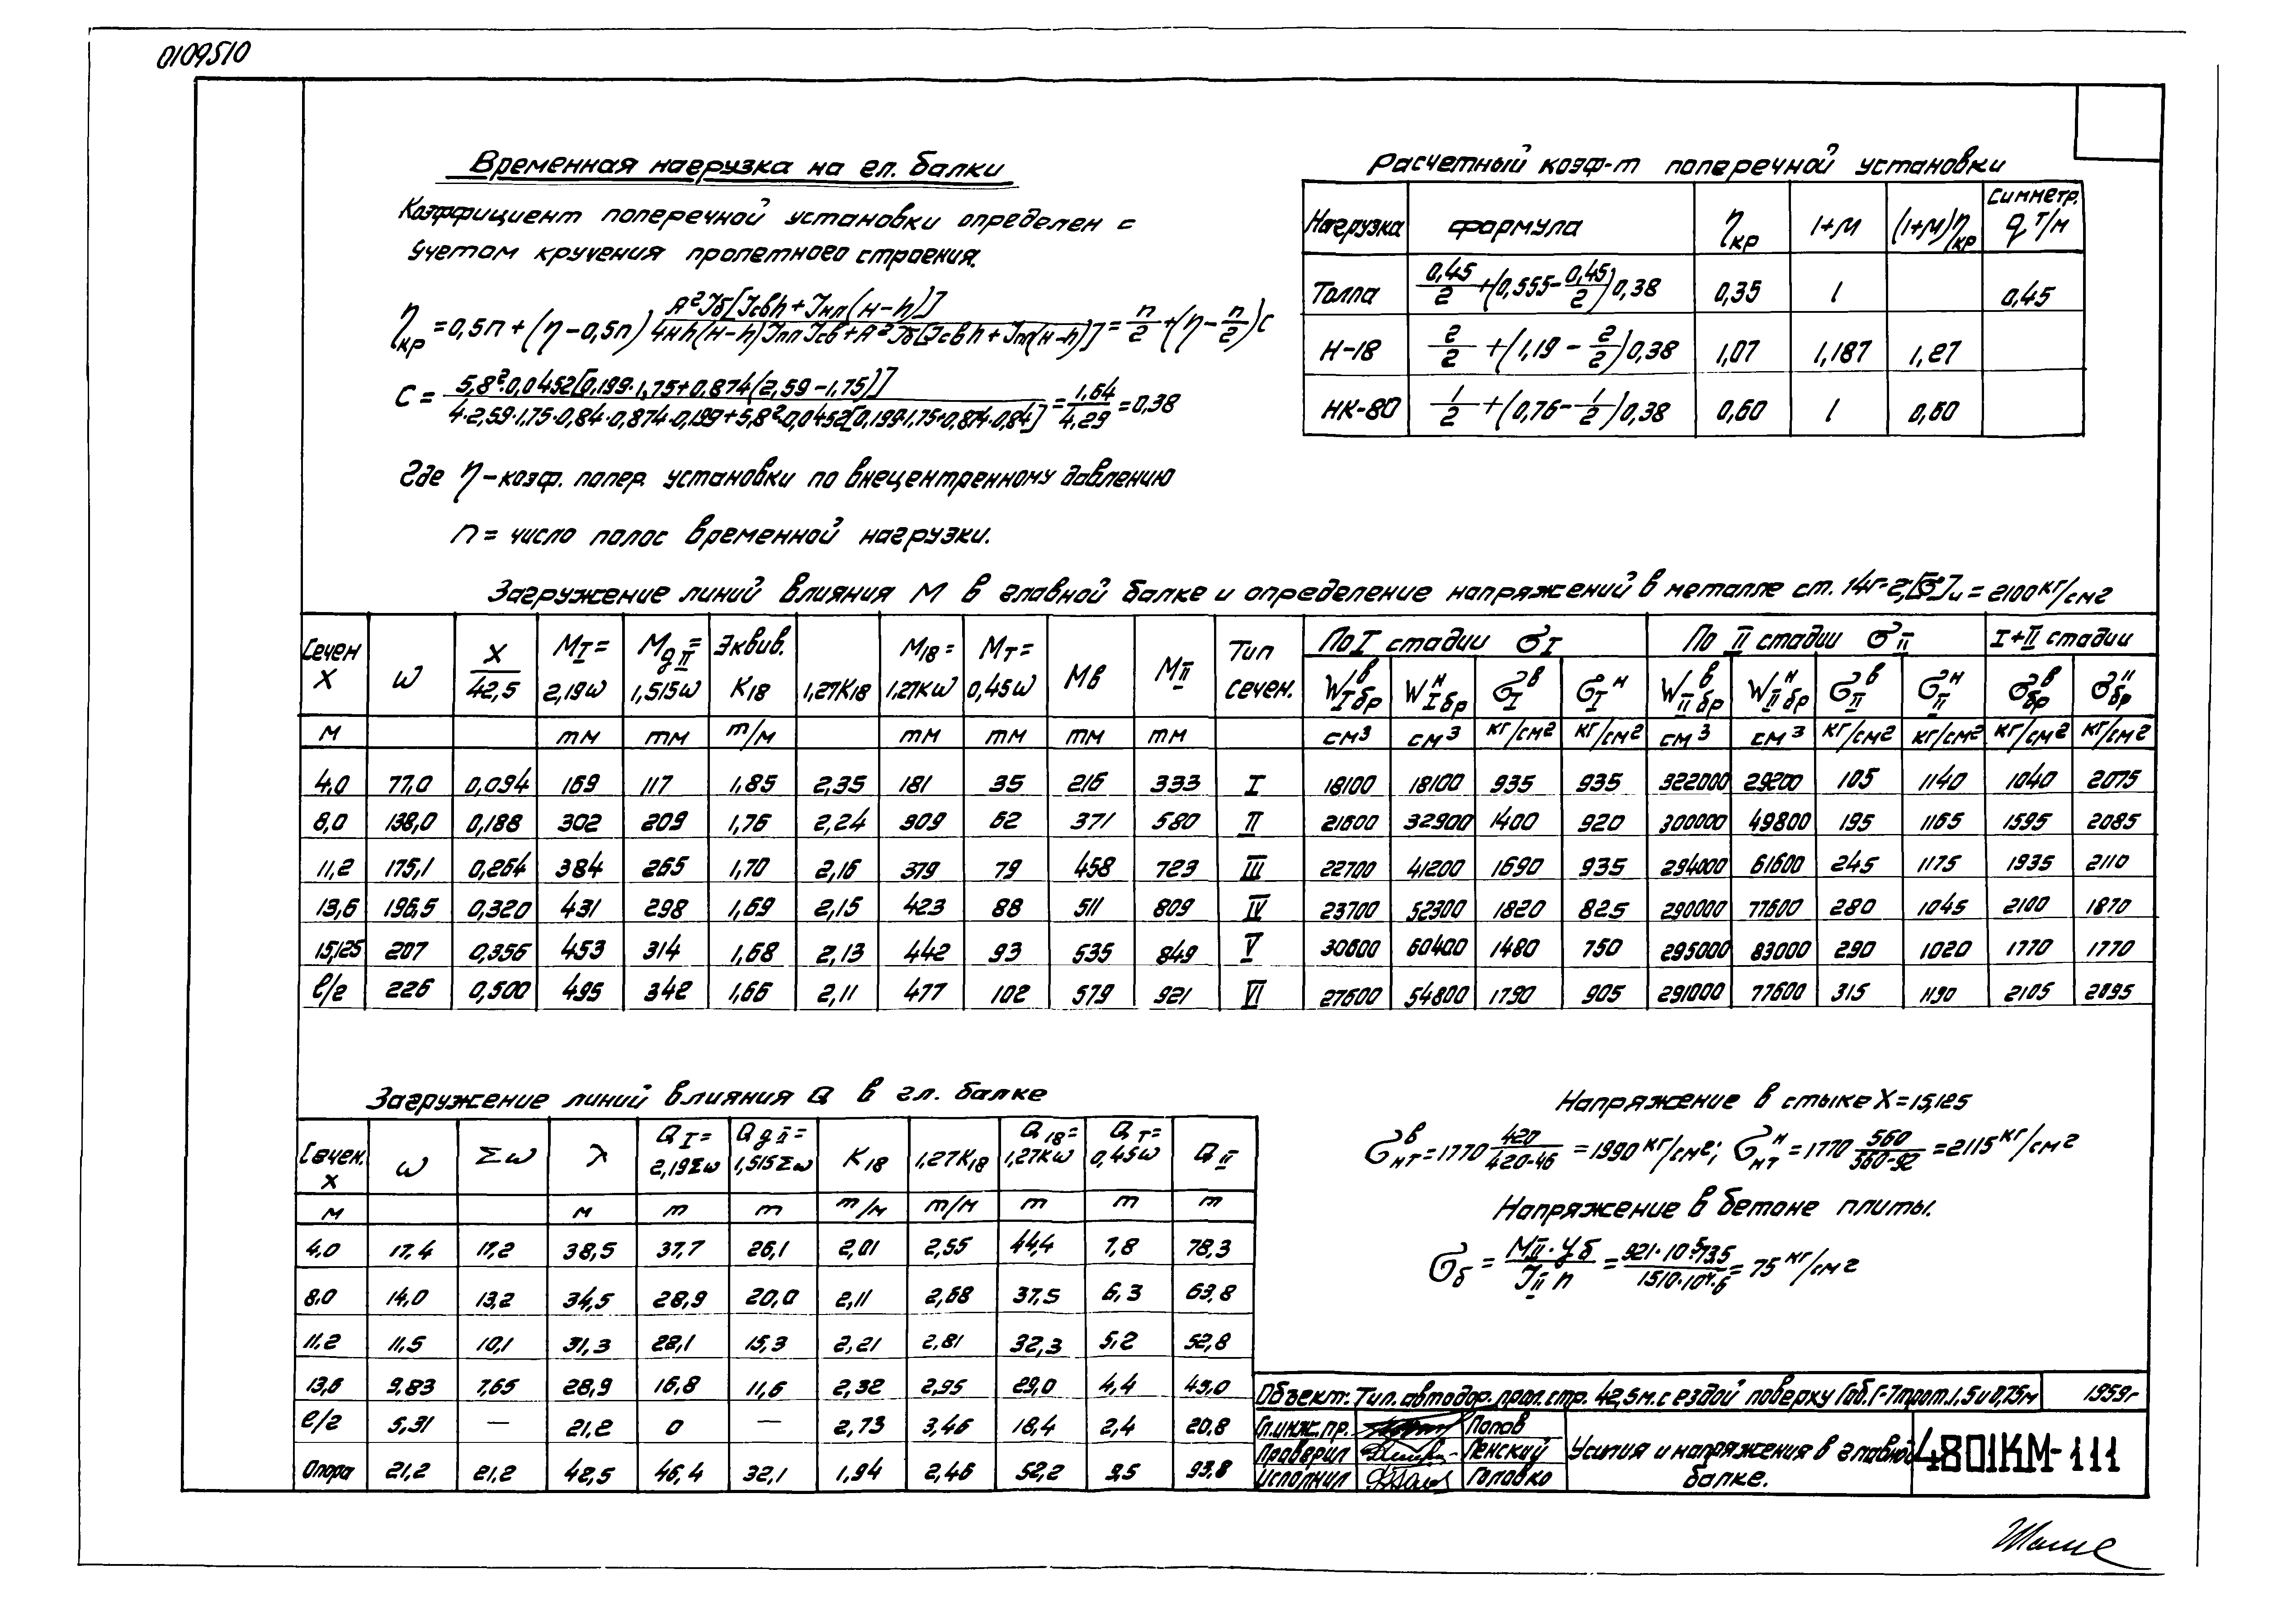 0109510
Временная нагрузка на гл. балки
Коэффициент поперечной установки определен с
учетом кручения пролетного строения.
η кр = 0,5n + (η - 0,5n) A² Jб [Jсв h + Jнл (H - h)] / 4Hh(H - h) Jпл Jсв + A² Jб [Jсв h + Jпл (H - h)] = n/2 + (η - n/2) c
C = 5,8²·0,0452[0,199·1,75+0,874(2,59-1,75)] / 4·2,59·1,75·0,84·0,874·0,199+5,8²·0,0452[0,199·1,75+0,874·0,84] = 1,64/4,29 = 0,38
Где η - коэф. попер. установки по внецентренному давлению
n = число полос временной нагрузки.
Расчетный коэф-т поперечной установки
Нагрузка | формула | η кр | 1+М | (1+М)η кр | Симметр. q т/м
Толпа | 0,45/2 + (0,555 - 0,45/2) 0,38 | 0,35 | 1 | | 0,45
Н-18 | 2/2 + (1,19 - 2/2) 0,38 | 1,07 | 1,187 | 1,27
НК-80 | 1/2 + (0,76 - 1/2) 0,38 | 0,60 | 1 | 0,60
Загружение линий влияния М в главной балке и определение напряжений в металле ст. 14Г-2; [σ]и = 2100 кг/см2
Сечен X | ω | X/42,5 | MI = 2,19ω | Mд II = 1,515ω | Эквив. K18 | 1,27K18 | M18 = 1,27Kω | Mт = 0,45ω | Mв | MII | Тип сечен. | По I стадии σI | По II стадии σII | I+II стадии
WвI бр | WнI бр | σвI | σнI | WвII бр | WнII бр | σвII | σнII | σвбр | σнбр
м | | | тм | тм | т/м | | тм | тм | тм | тм | | см3 | см3 | кг/см2 | кг/см2 | см3 | см3 | кг/см2 | кг/см2 | кг/см2 | кг/см2
4,0 | 77,0 | 0,094 | 169 | 117 | 1,85 | 2,35 | 181 | 35 | 216 | 333 | I | 18100 | 18100 | 935 | 935 | 322000 | 29200 | 105 | 1140 | 1040 | 2075
8,0 | 138,0 | 0,188 | 302 | 209 | 1,76 | 2,24 | 309 | 62 | 371 | 580 | II | 21600 | 32900 | 1400 | 920 | 300000 | 49800 | 195 | 1165 | 1595 | 2085
11,2 | 175,1 | 0,264 | 384 | 265 | 1,70 | 2,16 | 379 | 79 | 458 | 723 | III | 22700 | 41200 | 1690 | 935 | 294000 | 61600 | 245 | 1175 | 1935 | 2110
13,6 | 196,5 | 0,320 | 431 | 298 | 1,69 | 2,15 | 423 | 88 | 511 | 809 | IV | 23700 | 52300 | 1820 | 825 | 290000 | 77600 | 280 | 1045 | 2100 | 1870
15,125 | 207 | 0,356 | 453 | 314 | 1,68 | 2,13 | 442 | 93 | 535 | 849 | V | 30600 | 60400 | 1480 | 750 | 295000 | 83000 | 290 | 1020 | 1770 | 1770
l/2 | 226 | 0,500 | 495 | 342 | 1,66 | 2,11 | 477 | 102 | 579 | 921 | VI | 27600 | 54800 | 1790 | 905 | 291000 | 77600 | 315 | 1190 | 2105 | 2895
Загружение линий влияния Q в гл. балке
Сечен. X | ω | Σω | λ | QI = 2,19Σω | Qд II = 1,515Σω | K18 | 1,27K18 | Q18 = 1,27Kω | Qт = 0,45ω | QII
м | | | м | т | т | т/м | т/м | т | т | т
4,0 | 17,4 | 17,2 | 38,5 | 37,7 | 26,1 | 2,01 | 2,55 | 44,4 | 7,8 | 78,3
8,0 | 14,0 | 13,2 | 34,5 | 28,9 | 20,0 | 2,11 | 2,68 | 37,5 | 6,3 | 63,8
11,2 | 11,5 | 10,1 | 31,3 | 28,1 | 15,3 | 2,21 | 2,81 | 32,3 | 5,2 | 52,8
13,6 | 9,83 | 7,65 | 28,9 | 16,8 | 11,6 | 2,32 | 2,95 | 29,0 | 4,4 | 45,0
l/2 | 5,31 | — | 21,2 | 0 | — | 2,73 | 3,46 | 18,4 | 2,4 | 20,8
Опора | 21,2 | 21,2 | 42,5 | 46,4 | 32,1 | 1,94 | 2,46 | 52,2 | 9,5 | 93,8
Напряжение в стыке X = 15,125
σвнт = 1770 420/420-46 = 1990 кг/см2; σннт = 1770 560/560-92 = 2115 кг/см2
Напряжение в бетоне плиты.
σб = MII · Уб / JII n = 921·10⁵·73,5 / 1510·10⁴·6 = 75 кг/см2
Объект: Тип. автодор. прол. стр. 42,5м. с ездой поверху Габ. Г-7 трот. 1,5 и 0,75м | 1959г
Гл. инж. пр. Попов
Проверил Ленский
Исполнил Головко
Усилия и напряжения в главной
балке.
4801КМ-111